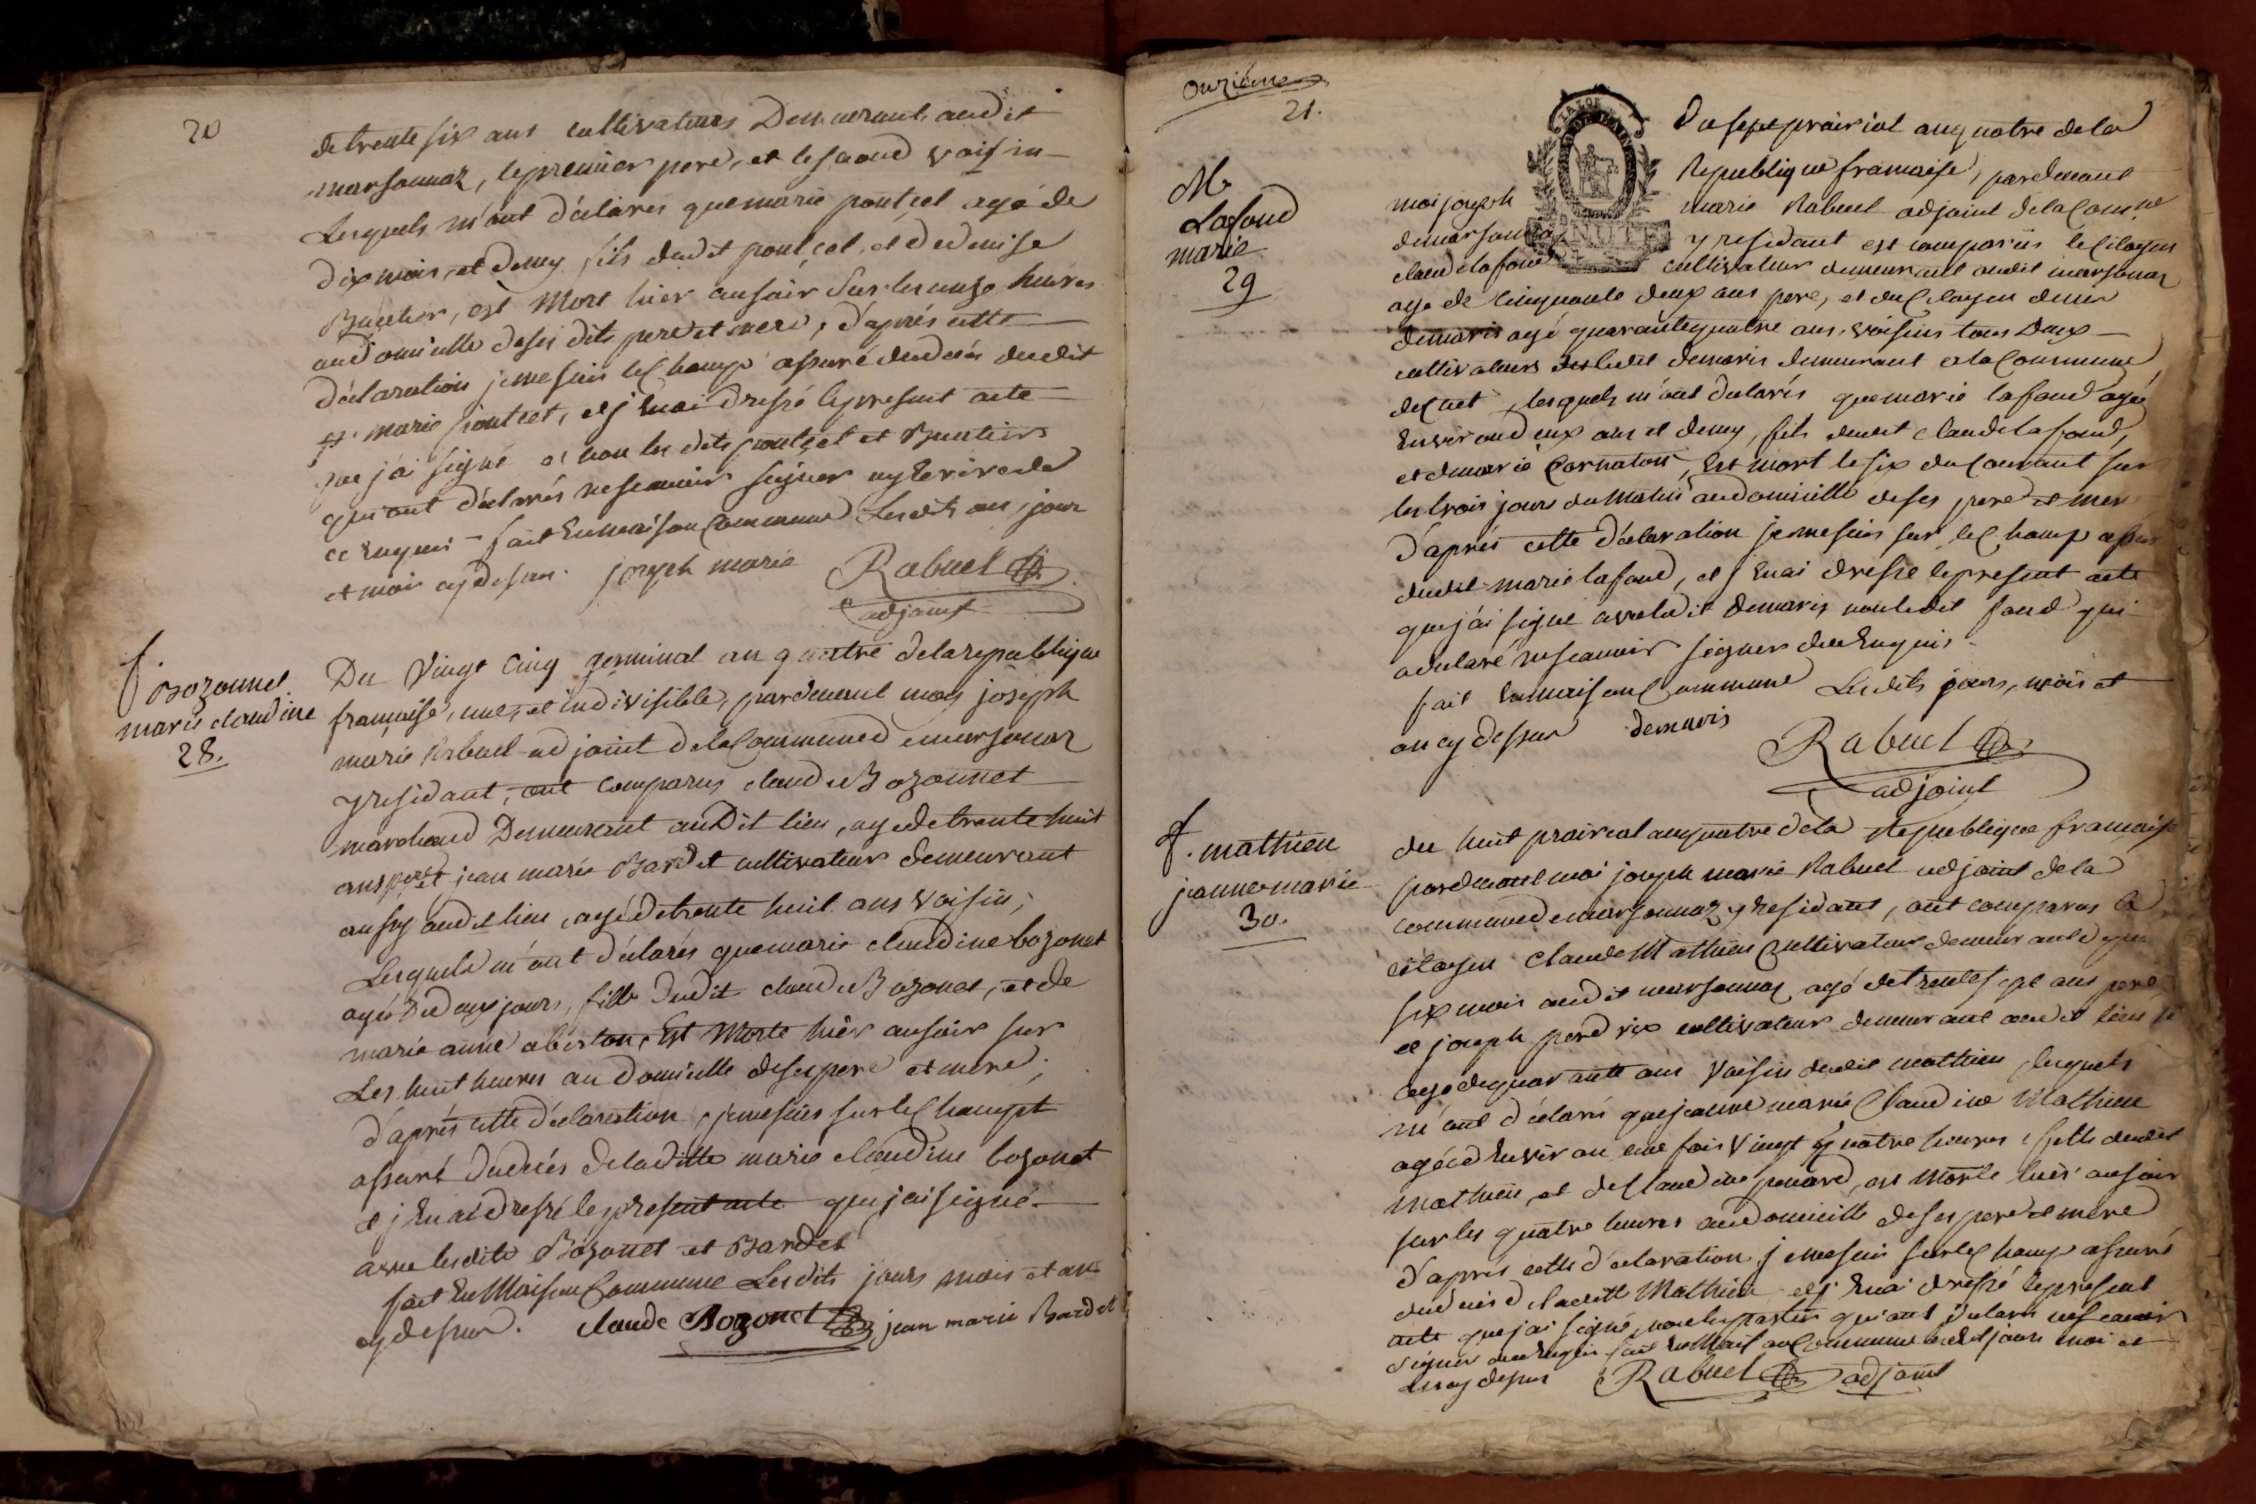 20
de trente six ans cultivateurs Demeurant audit
marsonnaz, le premier pere, et le second voisin
Lesquels m'ont déclarés que marie pontcet agé de
dix mois et demy fils dudit pontcet, et de denise
Buatier, est Mort hier au soir Sur les onze heures
au domicille de ses dits pere et mere, d'aprés cette
déclaration je me suis le Champ assuré du decés dudit
marie pontcet, et j'enai dressé le present acte
que j'ai signé et non les dits pontcet et Buatier
qui ont déclarés ne scavoir signer
ce enquis fait en maison Commune Lesdits an, jour
et mois cy dessus. joseph marie Rabuel
adjoint
f. Bozonnet
marie claudine
28.
Du Vingt Cinq germinal an quatre de la republique
française, une, et indivisible, pardevant moy joseph
marie Rabuel adjoint de la Commune de marsonnaz
y residant, ont comparus claude Bozonnet
marchand Demeurant audit lieu, agé de trente huit
ans pere et jean marie Bardet cultivateur demeurant
aussy audit lieu, agé de trente huit ans voisin,
Lesquels m'ont déclarés que marie claudine bozonet
agée de deux jours, fille dudit claude Bozonet, et de
marie anne abertou, Est Morte hier au soir sur
Les huit heures au domicille de ses pere et mere,
d'aprés cette déclaration, je me suis sur le Champt
assuré du decés de laditte marie claudine bozonet
et j'enai dressé le present acte que j'ai signé
avec lesdits Bozonet et Bardet
fait en Maison Commune Lesdits jours mois et an
cy dessus. claude Bozonet jean marie Bardet
onziéme
21.
M.
Lafond
marie
29
Du sept prairial an quatre de la
Republique francaise, pardevant
moi joseph marie Rabuel adjoint de la Comne
de marsonnaz y residant est comparus le Citoyen
claude lafond cultivateur demeurant audit marsonnaz
age de Cinquante deux ans pere, et du Citoyen denis
demaris agé quarante quatre ans, voisins tous Deux
cultivateurs ledit demaris demeurant a la Commune
de Cuet, lesquels m'ont declarés que marie lafond agé
Environ deux ans et demy, fils dudit claude lafond,
et de marie Cornaton, Est mort le six du Courant sur
les trois jours du Matin au domicille de ses pere et mere
d'aprés cette déclaration je me suis sur le Champ assuré
dudit marie lafond, et j'enai dressé le present acte
que j'ai signé avec ledit demaris, non ledit fond qui
a declaré ne scavoir signer de ce Enquis
fait en maison Commune Lesdits jours, mois et
an cy dessus demaris Rabuel
adjoint
f. mathieu
jeanne marie
30.
du huit prairial an quatre de la Republique francaise
pardevant moi joseph marie Rabuel adjoint de la
commune de marsonnaz y residant, ont comparus le
citoyen Claude Mathieu Cultivateur demeurant depuis
six mois audit marsonnaz agé de trente sept ans pere
et joseph perdrix cultivateur demeurant audit lieu
agé de quarante ans Voisin dudit mathieu, lesquels
m'ont déclarés que jeanne marie Claudine Mathieu
agée d'Environ une fois vingt quatre heures, fille dudit
Mathieu, et de Claudine penard, est Morte hier au soir
sur les quatre heures au domicille de ses pere et mere
d'aprés cette déclaration, je me suis sur le Champ assuré
du decés de laditte Mathieu et j'enai dressé le present
acte que j'ai signé, non les parties qui ont declaré ne scavoir
signer de ce Enquis fait en Maison Commune lesdit jours mois et
an cy dessus Rabuel adjoint